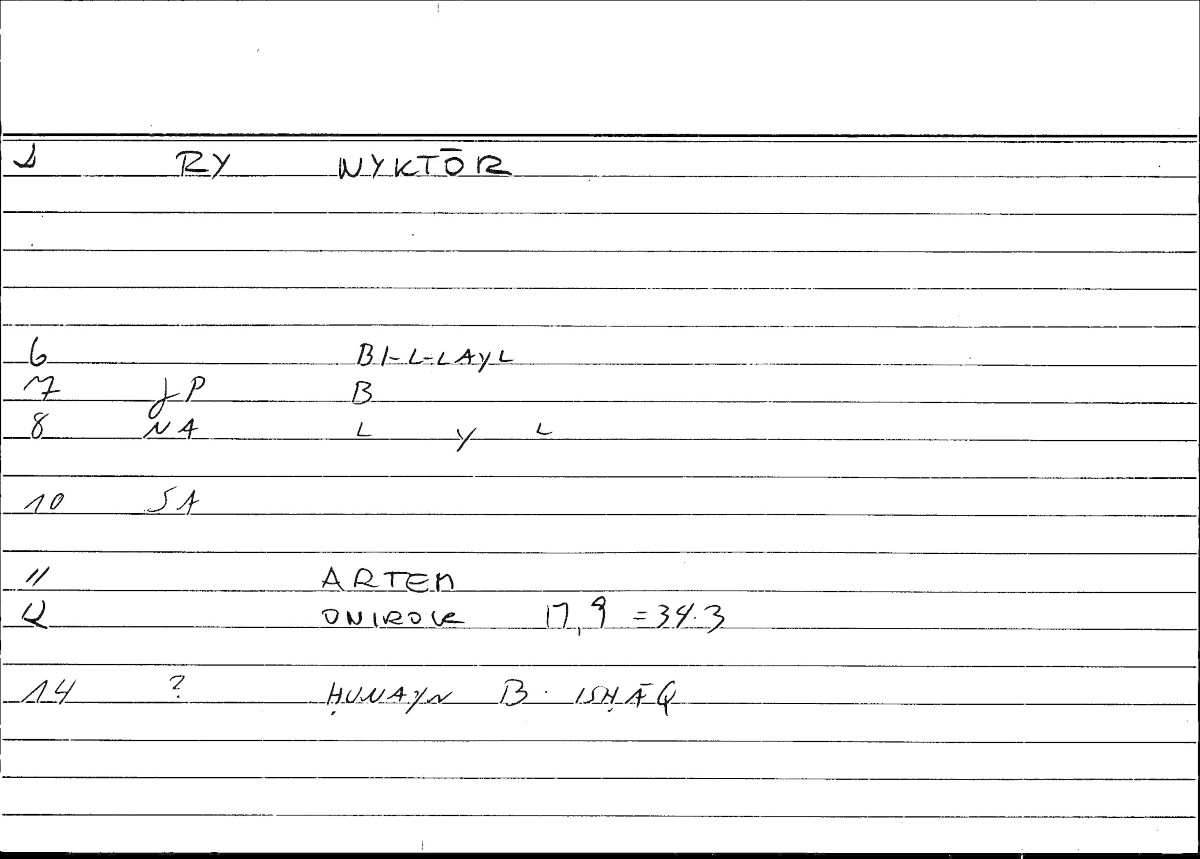 1 RY NYKTŌR
6 BI-L-LAYL
7 JP B
8 NA L Y L
10 SA
11 ARTEM
12 ONIROK 17,9 = 34.3
14 ? ḤUNAYN B. ISḤĀQ